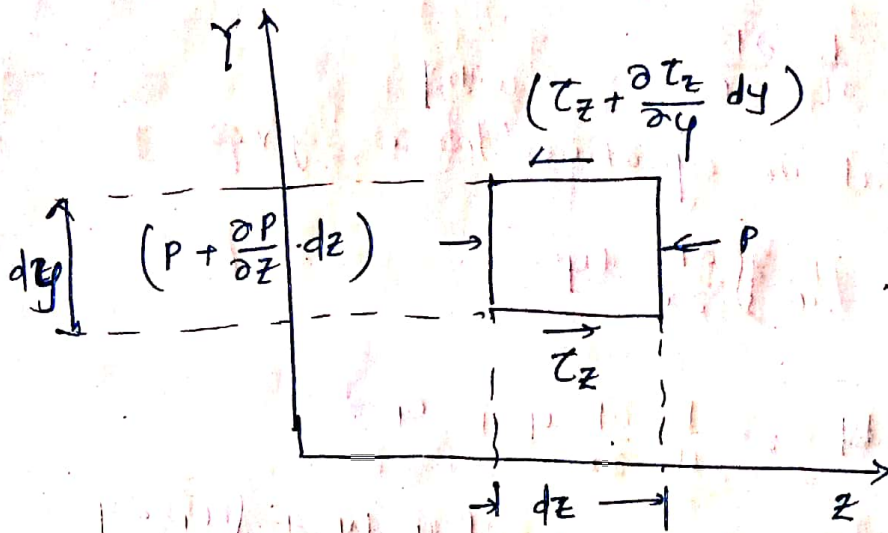 Y
(τz + ∂τz/∂y dy)
dy
(P + ∂P/∂z · dz)
P
τz
dz
z